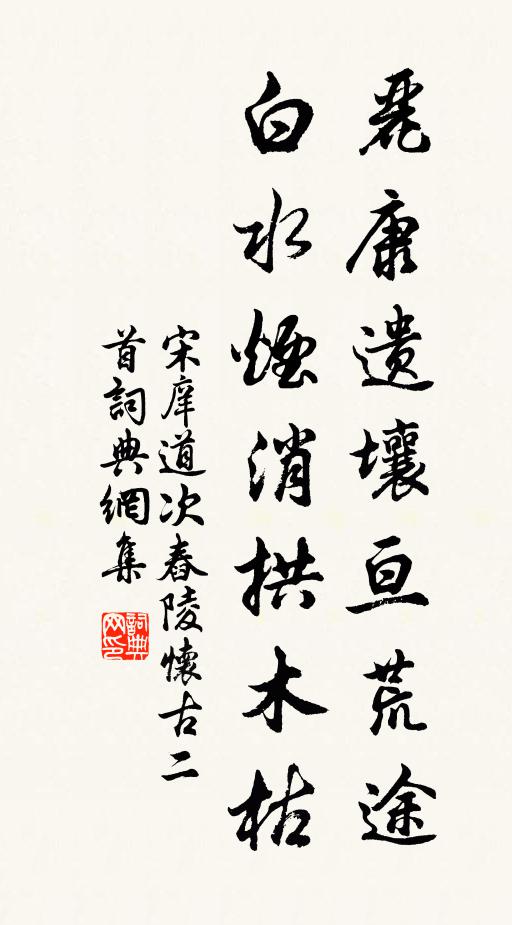 麗康遺壤亘荒途
白水煙消拱木枯
宋庠道次舂陵懷古二
首詞典網集
詞典网印